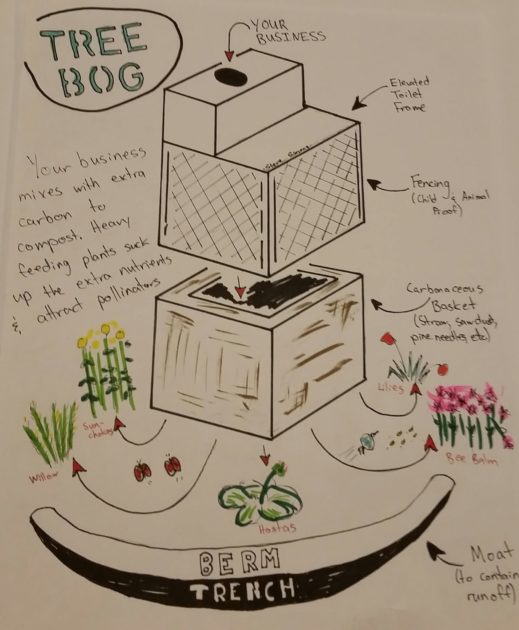 TREE
BOG
YOUR
BUSINESS
Elevated
Toilet
Frame
Your business
mixes with extra
carbon to
compost. Heavy
feeding plants suck
up the extra nutrients
& attract pollinators
Fencing
(Child & Animal
Proof)
Carbonaceous
Basket
(Straw, sawdust,
pine needles, etc)
Lilies
Sun-
chokes
Willow
Bee Balm
Hostas
BERM
TRENCH
Moat
(to contain
runoff)